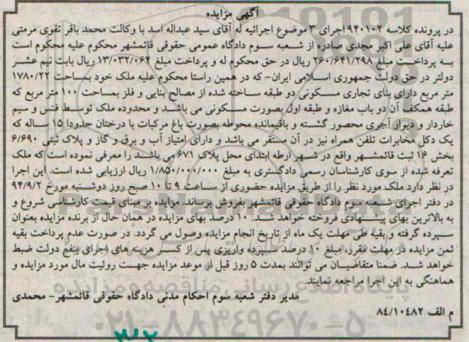 آگهی مزایده
در پرونده کلاسه ۹۴۰۱۰۲ اجرای ۳ موضوع اجرائیه له آقای سید عبداله اسد با وکالت محمد باقر تقوی مرمتی
علیه آقای علی اکبر مجدی صادره از شعبه سوم دادگاه عمومی حقوقی قائمشهر محکوم علیه محکوم است
به پرداخت مبلغ ۲۶۰/۶۴۱/۲۹۸ ریال در حق محکوم له و پرداخت مبلغ ۱۳/۰۳۲/۰۶۴ ریال بابت نیم عشر
دولتر در حق دولت جمهوری اسلامی ایران- که در همین راستا محکوم علیه ملک خود بمساحت ۱۷۸۰/۲۲
متر مربع دارای بنای تجاری مسکونی دو طبقه ساخته شده از مصالح بنایی و فلز بمساحت ۱۰۰ متر مربع که
طبقه همکف آن دو باب مغازه و طبقه اول بصورت مسکونی می باشد و محدوده ملک توسط فنس و سیم
خاردار و دیوار آجری محصور گشته و باقیمانده محوطه بصورت باغ مرکبات با درختان حدودا ۱۵ ساله که
یک دکل مخابرات تلفن همراه نیز در آن مستقر می باشد و دارای امتیاز آب و برق و گاز و پلاک ثبتی ۶/۶۹۰
بخش ۱۶ ثبت قائمشهر واقع در شهر ارطه ابتدای محل پلاک ۶۷۱ می باشد را معرفی نموده است که ملک
تعرفه شده از سوی کارشناسان رسمی دادگستری به مبلغ ۱/۸۵۰/۰۰۰/۰۰۰ ریال ارزیابی شده است. این اجرا
در نظر دارد ملک مورد نظر را از طریق مزایده حضوری از ساعت ۹ تا ۱۰ صبح روز دوشنبه مورخ ۹۴/۹/۲
در دفتر اجرای شعبه سوم دادگاه حقوقی قائمشهر بفروش برساند. مزایده بر مبنای قیمت کارشناسی شروع و
به بالاترین بهای پیشنهادی فروخته خواهد شد. ۱۰ درصد بهای مزایده در همان حال از برنده مزایده بعنوان
سپرده گرفته و بقیه طی مهلت یک ماه از تاریخ انجام مزایده وصول می گردد. در صورت عدم پرداخت بقیه
ثمن مزایده در مهلت مقرر، مبلغ ۱۰ درصد سپرده واریزی پس از کسر هزینه های اجرای بنفع دولت ضبط
خواهد شد. ضمنا متقاضیان می توانند بمدت ۵ روز قبل از موعد مزایده جهت روئیت مال مورد مزایده و
هماهنگی به این اجرا مراجعه نمایند.
مدیر دفتر شعبه سوم احکام مدنی دادگاه حقوقی قائمشهر- محمدی
م الف ۸۴/۱۰۴۸۲
۰۲۱-۸۸۳۴۹۶۷۰-۵